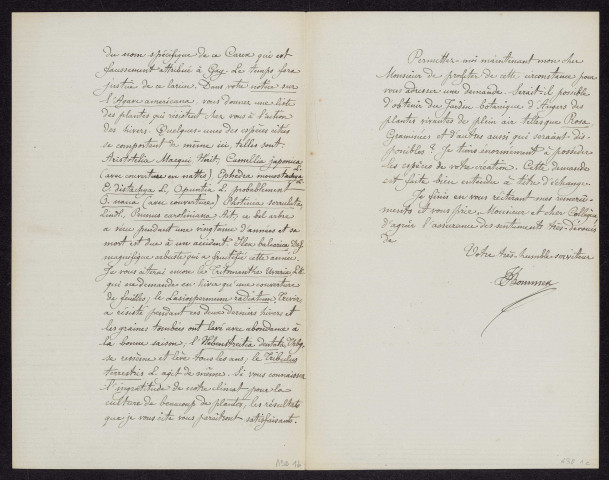 du nom spécifique de ce Carex qui est
faussement attribué à Gay. Le temps fera
justice de ce larcin. Dans votre notice sur
l'Agave americana, vous donnez une liste
des plantes qui résistent chez vous à l'action
des hivers. Quelques-unes des espèces citées
se comportent de même ici, telles sont:
Aristotelia Macqui, Hérit. Camellia japonica L.
(avec couverture en nattes). Ephedra monostachya, L.
E. distachya L. Opuntia L. probablement
O. nana (avec couverture) Photinia serrulata,
Lindl. Prunus caroliniana Ait. ce bel arbre
a vécu pendant une vingtaine d'années et sa
mort est due à un accident. Ilex balearica Desf.
magnifique arbuste qui a fructifié cette année.
Je vous citerai encore le
qui ne demande en hiver qu'une couverture
de feuilles; le Lasiospermum radiatum, Trévir
a résisté pendant ces deux derniers hivers et
les graines tombées ont levé avec abondance à
la bonne saison; l'Hebenstreitia dentata, Thbg.
se ressème et lève tous les ans; le Tribulus
terrestris L. agit de même. Si vous connaissez
l'ingratitude de notre climat pour la
culture de beaucoup de plantes, les résultats
que je vous cite vous paraîtront satisfaisants.
Permettez-moi maintenant mon cher
Monsieur de profiter de cette circonstance pour
vous adresser une demande. Serait-il possible
d'obtenir du Jardin botanique d'Angers des
plantes vivantes de plein air telles que Rosa,
Graminées et d'autres aussi qui seraient dis-
ponibles? Je tiens énormément à posséder
les espèces de votre création. Cette demande
est faite bien entendu à titre d'échange.
Je finis en vous réitérant mes remercie-
ments et vous prie, Monsieur et cher Collègue,
d'agréer l'assurance des sentiments très-dévoués
de
Votre très-humble serviteur